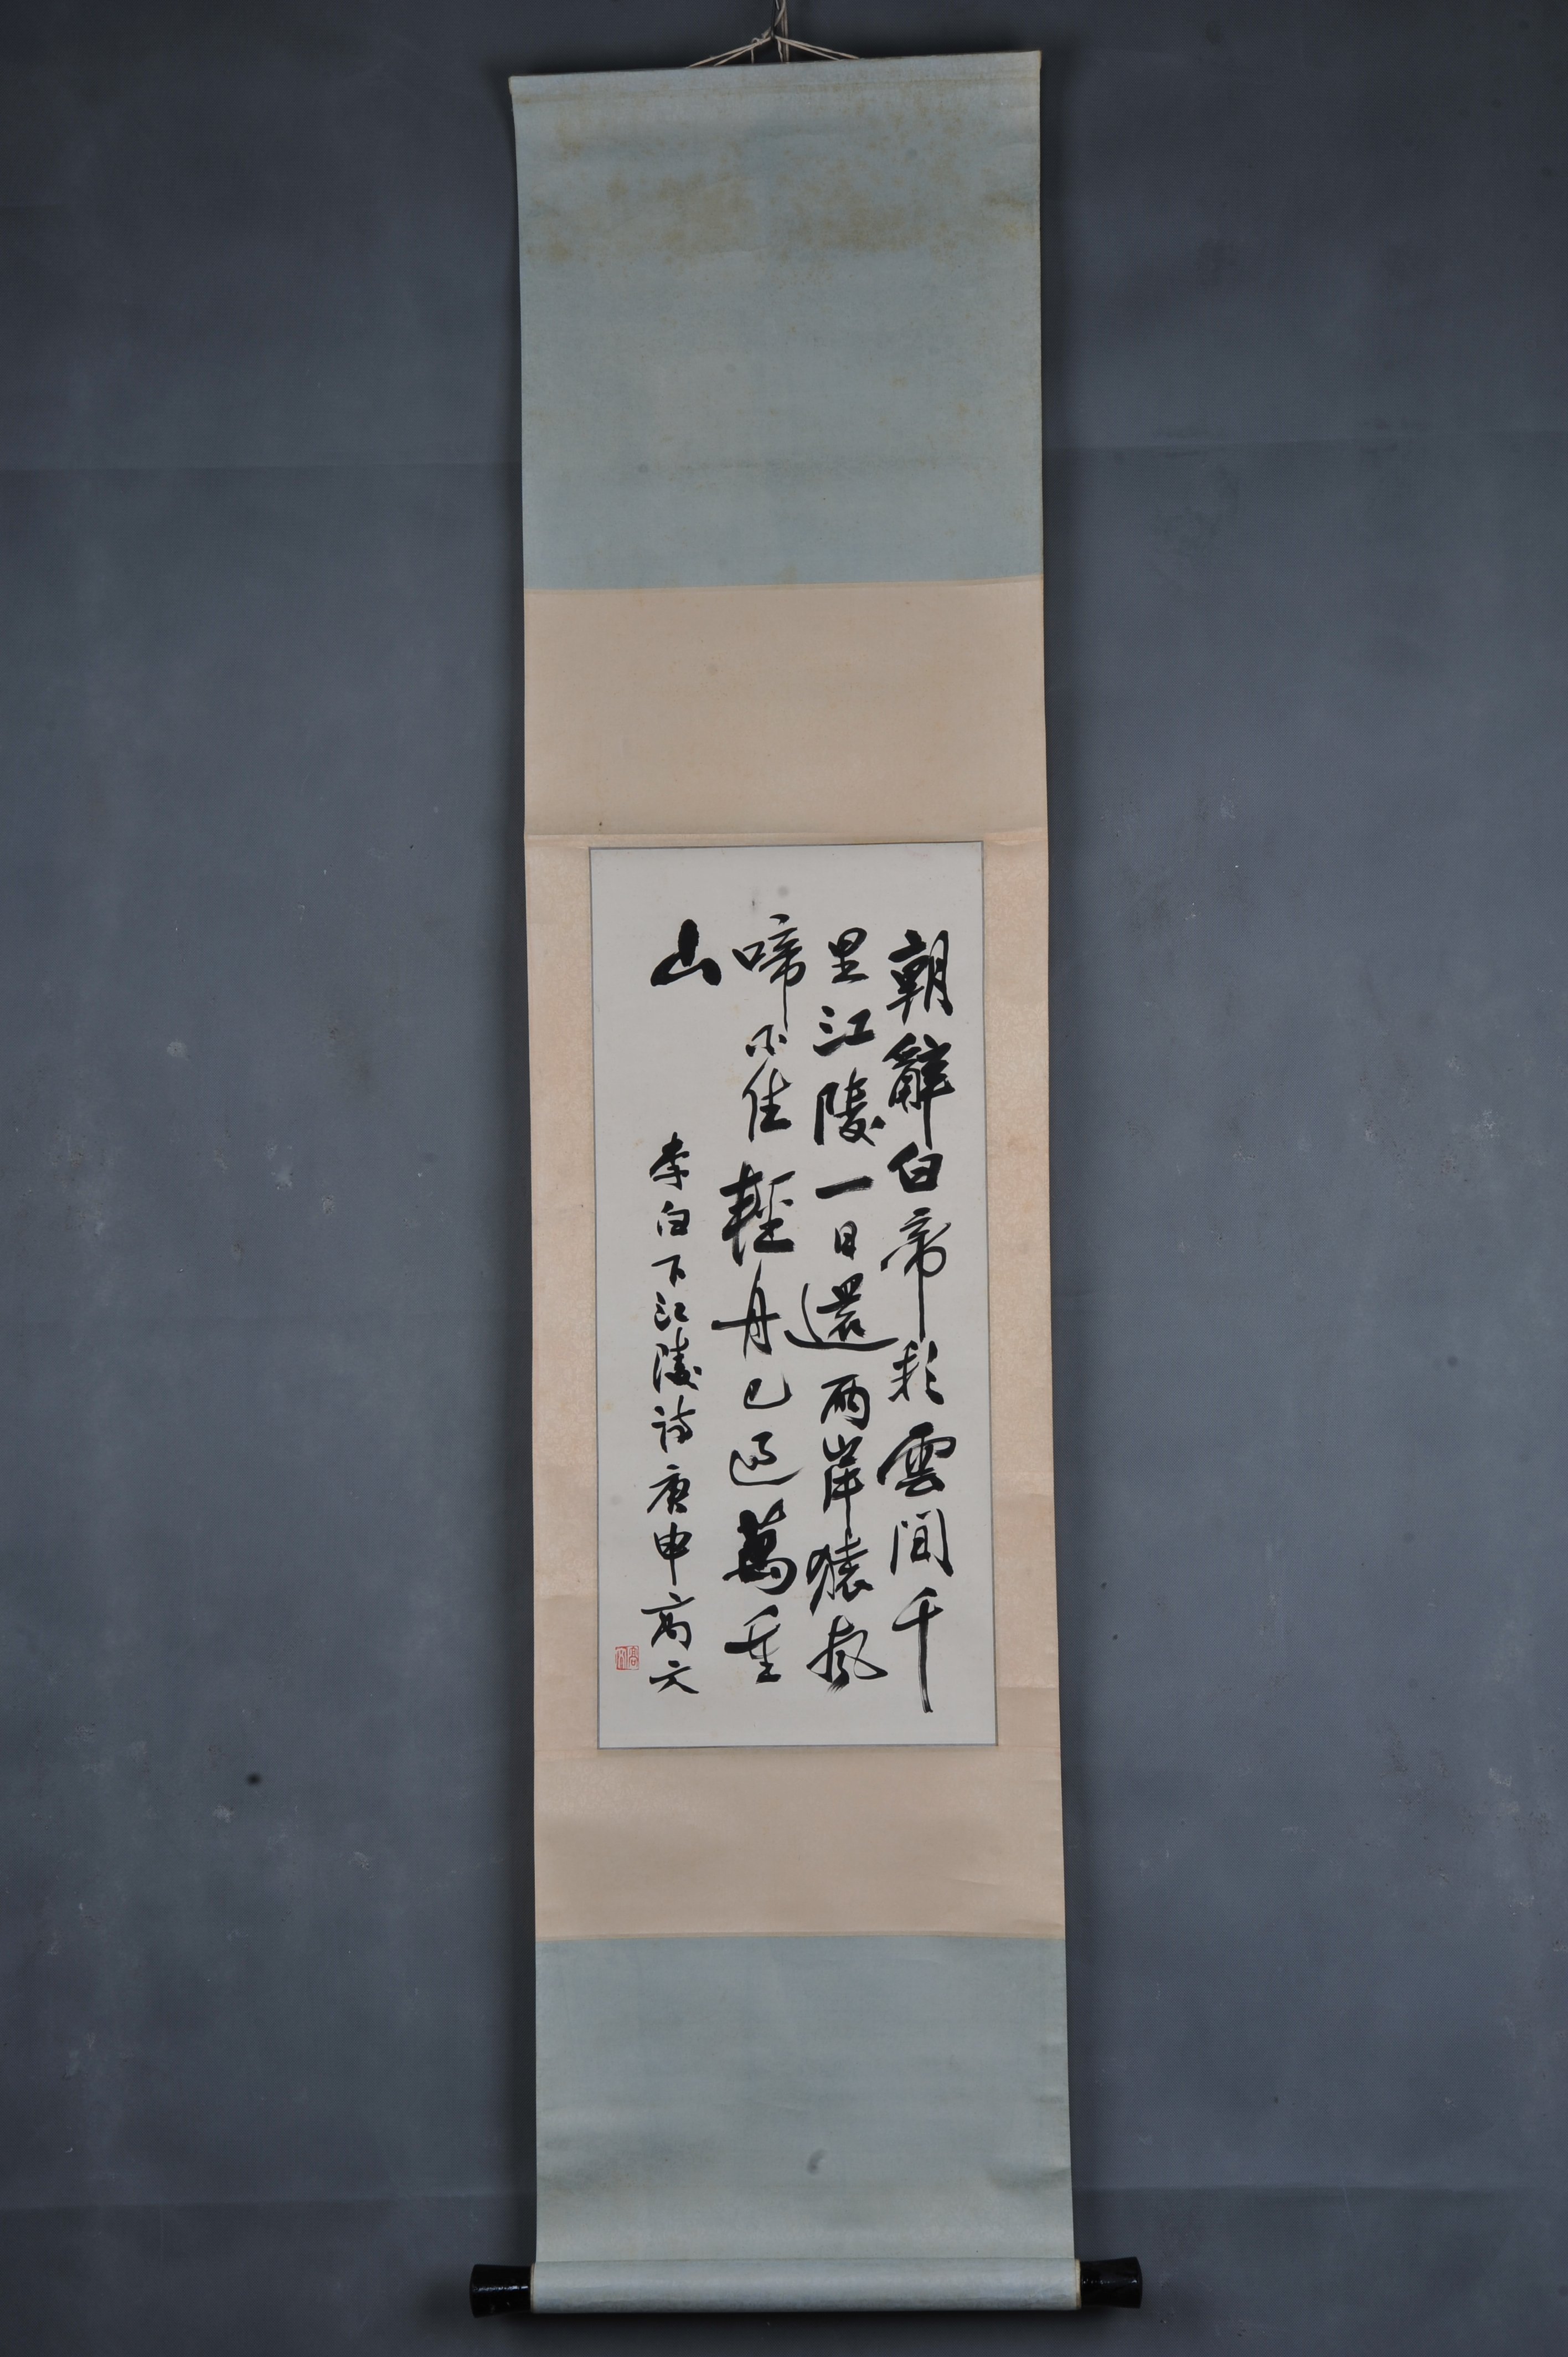 朝辭白帝彩雲間千
里江陵一日還兩岸猿聲
啼不住輕舟已過萬重
山
李白下江陵詩庚申高文